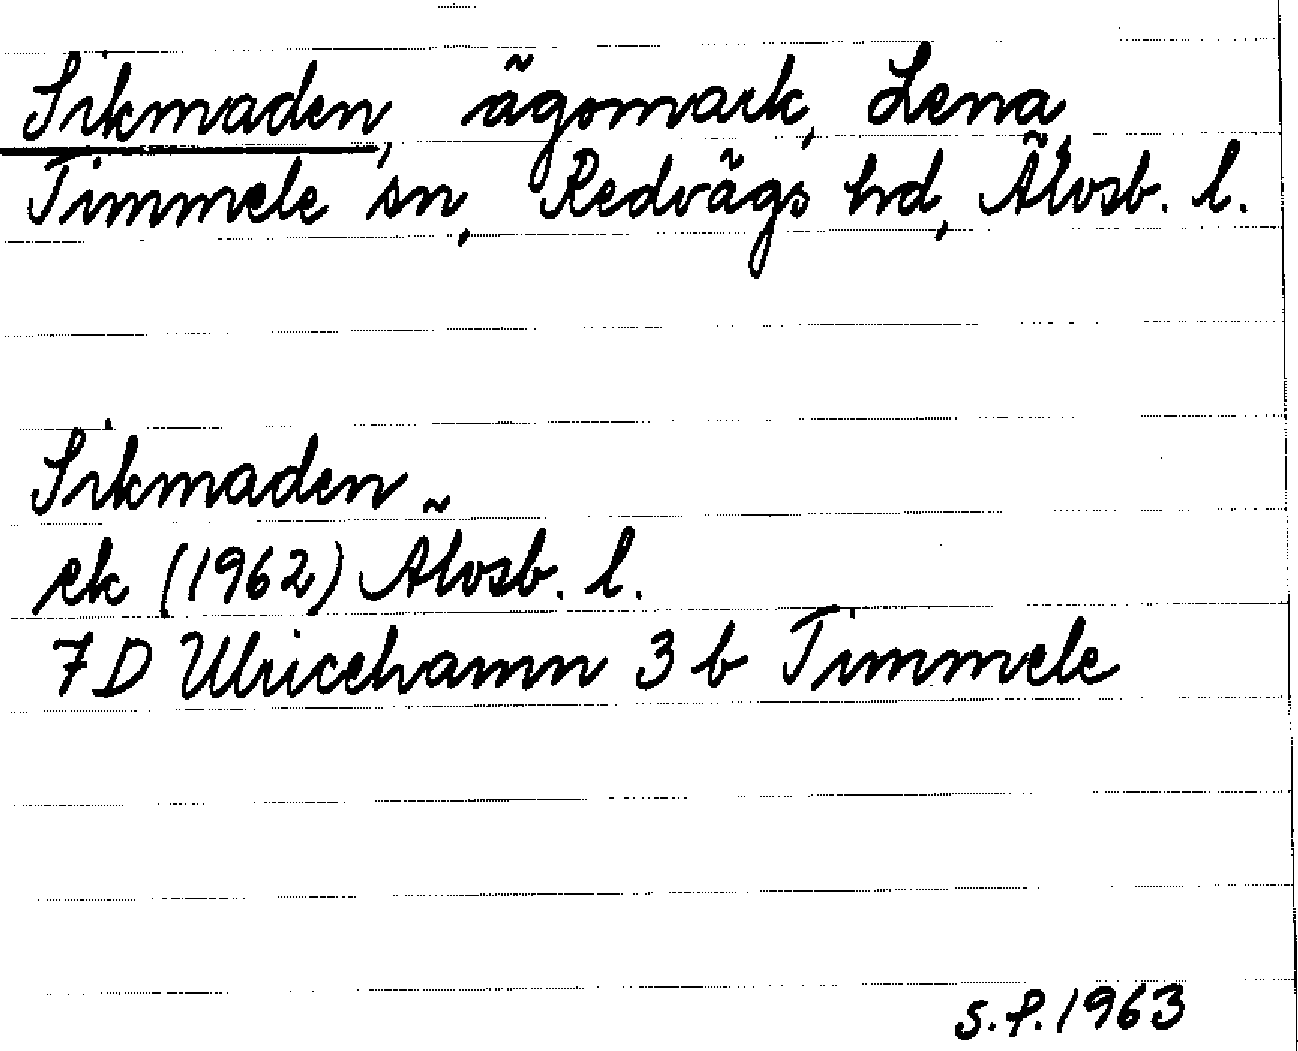 Sikmaden, ägomark, Lena,
Timmele sn, Redvägs hd, Älvsb. l.
Sikmaden
ek (1962) Älvsb. l.
7D Ulricehamn 3 b Timmele
S.P. 1963